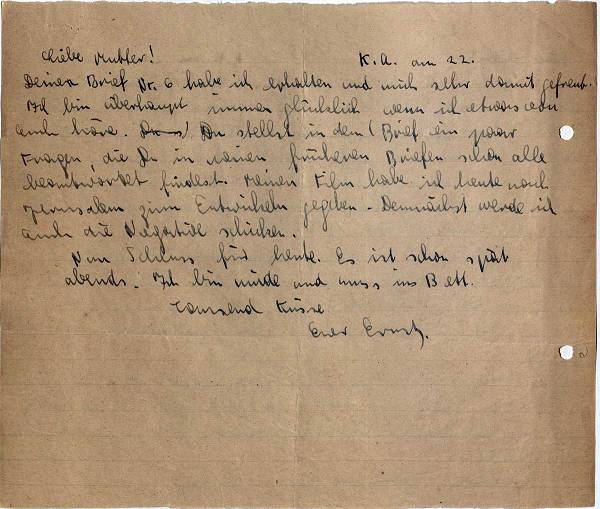 Liebe Mutter! K.A. am 22.
Deinen Brief Nr. 6 habe ich erhalten und mich sehr damit gefreut.
Ich bin überhaupt immer glücklich wenn ich etwas von
euch höre. Du stellst in dem Brief ein paar
Fragen, die Du in meinen früheren Briefen schon alle
beantwortet findest. Meinen Film habe ich heute nach
Jerusalem zum Entwickeln gegeben - Demnächst werde ich
auch die Negative schicken.
Nun Schluss für heute. Es ist schon spät
abends. Ich bin müde und muss ins Bett.
Tausend Küsse
Euer Ernst.